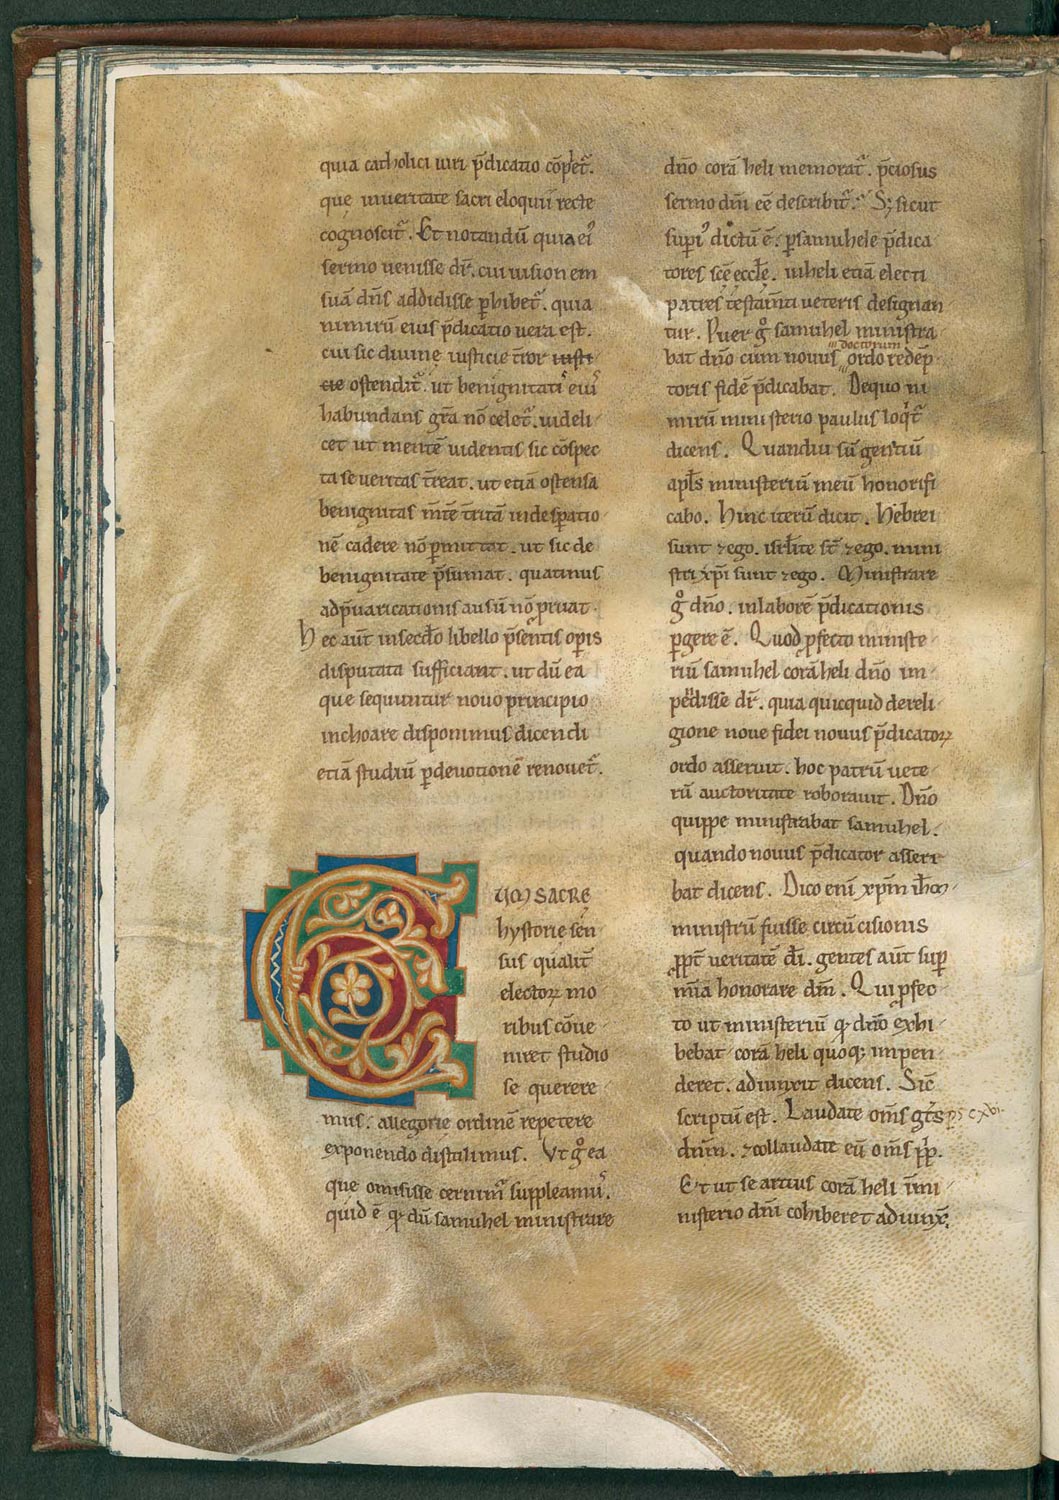 quia catholici uiri p̄dicatio cōpet᷑.
que inueritate sacri eloquii recte
cognoscit᷑. Et notandū quia ei᷒
sermo uenisse dr̄. cui uisionem
suā dn̄s addidisse ꝑhibet᷑. quia
nimirū eius p̄dicatio uera est.
cui sic diuinę iusticie t̄ror iusti
cie ostendit᷑. ut benignitatis eiu᷒
habundans gr̄a nō celet᷑. uideli
cet ut mentē uidentis sic cōspec
ta seueritas t̄reat. ut etiā ostensa
benignitas mēte t̄ritā indesꝑatio
nē cadere nō ꝑmittat. ut sic de
benignitate p̄sumat. quatinus
adp̄uaricationis ausū nō ꝓruat.
Hec aut̄ insecdo libello p̄sentis oꝑis
disputata sufficiant. ut dū ea
que sequuntur nouo principio
inchoare disponimus dicendi
etiā studiū ꝑdeuotionē renouet᷑.
CUM SACRĘ
hystorię sen
sus qualit̄
electoꝝ mo
ribus cōue
niret studio
se querere
mus. allegorię ordinē repetere
exponendo distulimus. Vt gͦ ea
que omisisse cernim᷒ suppleam᷒.
quid ē qd̄ dū samuhel ministrare
dn̄o corā heli memorat᷑. p̄ciosus
sermo dn̄i eē describit᷑. Sꝫ sicut
supi᷒ dictū ē. ꝑsamuhelē p̄dica
tores scē eccl̄e. inheli etiā electi
patres testam̄ti ueteris designan
tur. Puer gͦ samuhel ministra
bat dn̄o cum nouus doctorum ordo redēp
toris fidē p̄dicabat. Dequo ni
mirū ministerio paulus loqͥt᷑
dicens. Quandiu sū gentiū
apl̄s ministeriū meū honorifi
cabo. Hinc iterū dicit. Hebrei
sunt ⁊ego. isrl̄ite st̄ ⁊ego. mini
stri xp̄i sunt ⁊ego. Ministrare
gͦ dn̄o. inlaborē p̄dicationis
ꝑgere ē. Quod ꝓfecto ministe
riū samuhel corā heli dn̄o im
pēdisse dr̄. quia quicquid dereli
gione noue fidei nouus p̄dicatoꝝ
ordo asseruit. hoc patrū uete
rū auctoritate roborauit. Dn̄o
quippe ministrabat samuhel.
quando nouus p̄dicator asseri
bat dicens. Dico enī xpm̄ ihm̄
ministrū fuisse circūcisionis
ꝓpt̄ ueritatē dī. gentes aūt suꝑ
mīa honorare dm̄. Qui ꝓfec
to ut ministeriū qd̄ dn̄o exhi
bebat corā heli quoqꝫ impen
deret. adiunxit dicens. Sic̄
scriptū est. Laudate om̄s gēs ps cxvi.
dn̄m. ⁊collaudate eū om̄s pp̄li.
Et ut se artius corā heli īmi
nisterio dn̄i cohiberet adiunx̄.